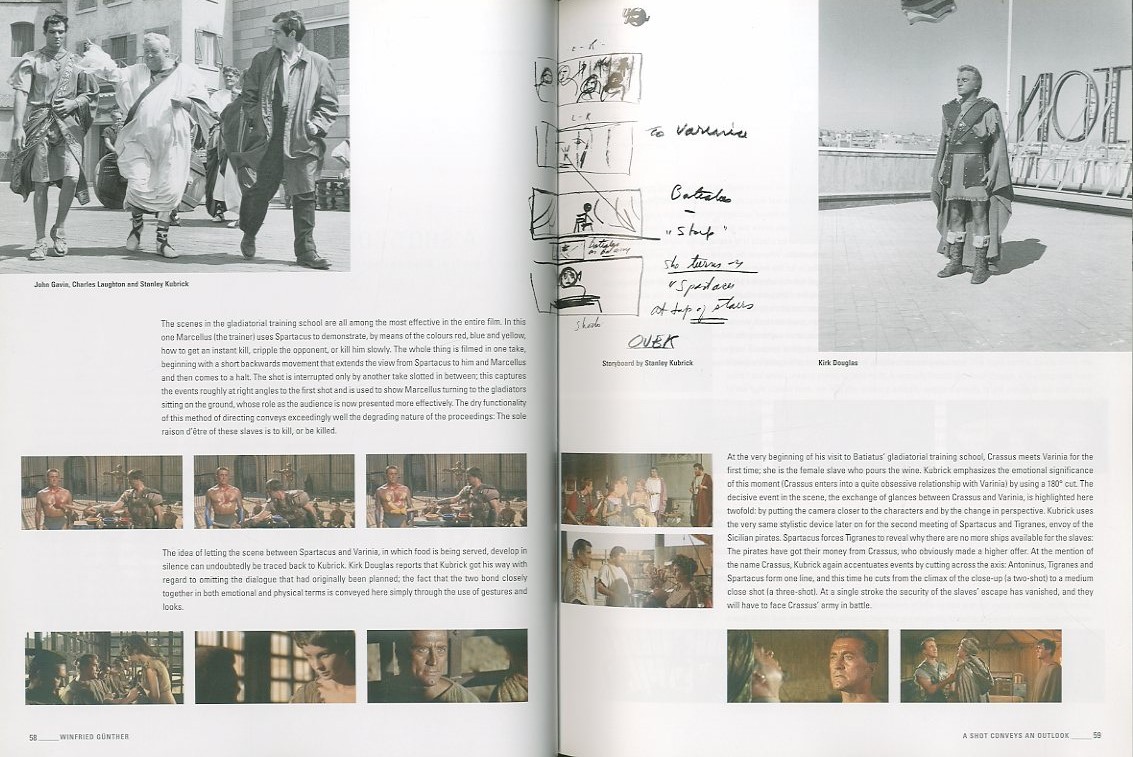 John Gavin, Charles Laughton and Stanley Kubrick
The scenes in the gladiatorial training school are all among the most effective in the entire film. In this
one Marcellus (the trainer) uses Spartacus to demonstrate, by means of the colours red, blue and yellow,
how to get an instant kill, cripple the opponent, or kill him slowly. The whole thing is filmed in one take,
beginning with a short backwards movement that extends the view from Spartacus to him and Marcellus
and then comes to a halt. The shot is interrupted only by another take slotted in between; this captures
the events roughly at right angles to the first shot and is used to show Marcellus turning to the gladiators
sitting on the ground, whose role as the audience is now presented more effectively. The dry functionality
of this method of directing conveys exceedingly well the degrading nature of the proceedings: The sole
raison d'être of these slaves is to kill, or be killed.
The idea of letting the scene between Spartacus and Varinia, in which food is being served, develop in
silence can undoubtedly be traced back to Kubrick. Kirk Douglas reports that Kubrick got his way with
regard to omitting the dialogue that had originally been planned; the fact that the two bond closely
together in both emotional and physical terms is conveyed here simply through the use of gestures and
looks.
58 WINFRIED GÜNTHER
L-R
to Varinia
Batiatus
"Stop"
She turns
"Spartacus
at top of stairs
OVER
Storyboard by Stanley Kubrick
TON
Kirk Douglas
At the very beginning of his visit to Batiatus' gladiatorial training school, Crassus meets Varinia for the
first time; she is the female slave who pours the wine. Kubrick emphasizes the emotional significance
of this moment (Crassus enters into a quite obsessive relationship with Varinia) by using a 180° cut. The
decisive event in the scene, the exchange of glances between Crassus and Varinia, is highlighted here
twofold: by putting the camera closer to the characters and by the change in perspective. Kubrick uses
the very same stylistic device later on for the second meeting of Spartacus and Tigranes, envoy of the
Sicilian pirates. Spartacus forces Tigranes to reveal why there are no more ships available for the slaves:
The pirates have got their money from Crassus, who obviously made a higher offer. At the mention of
the name Crassus, Kubrick again accentuates events by cutting across the axis: Antoninus, Tigranes and
Spartacus form one line, and this time he cuts from the climax of the close-up (a two-shot) to a medium
close shot (a three-shot). At a single stroke the security of the slaves' escape has vanished, and they
will have to face Crassus' army in battle.
A SHOT CONVEYS AN OUTLOOK 59